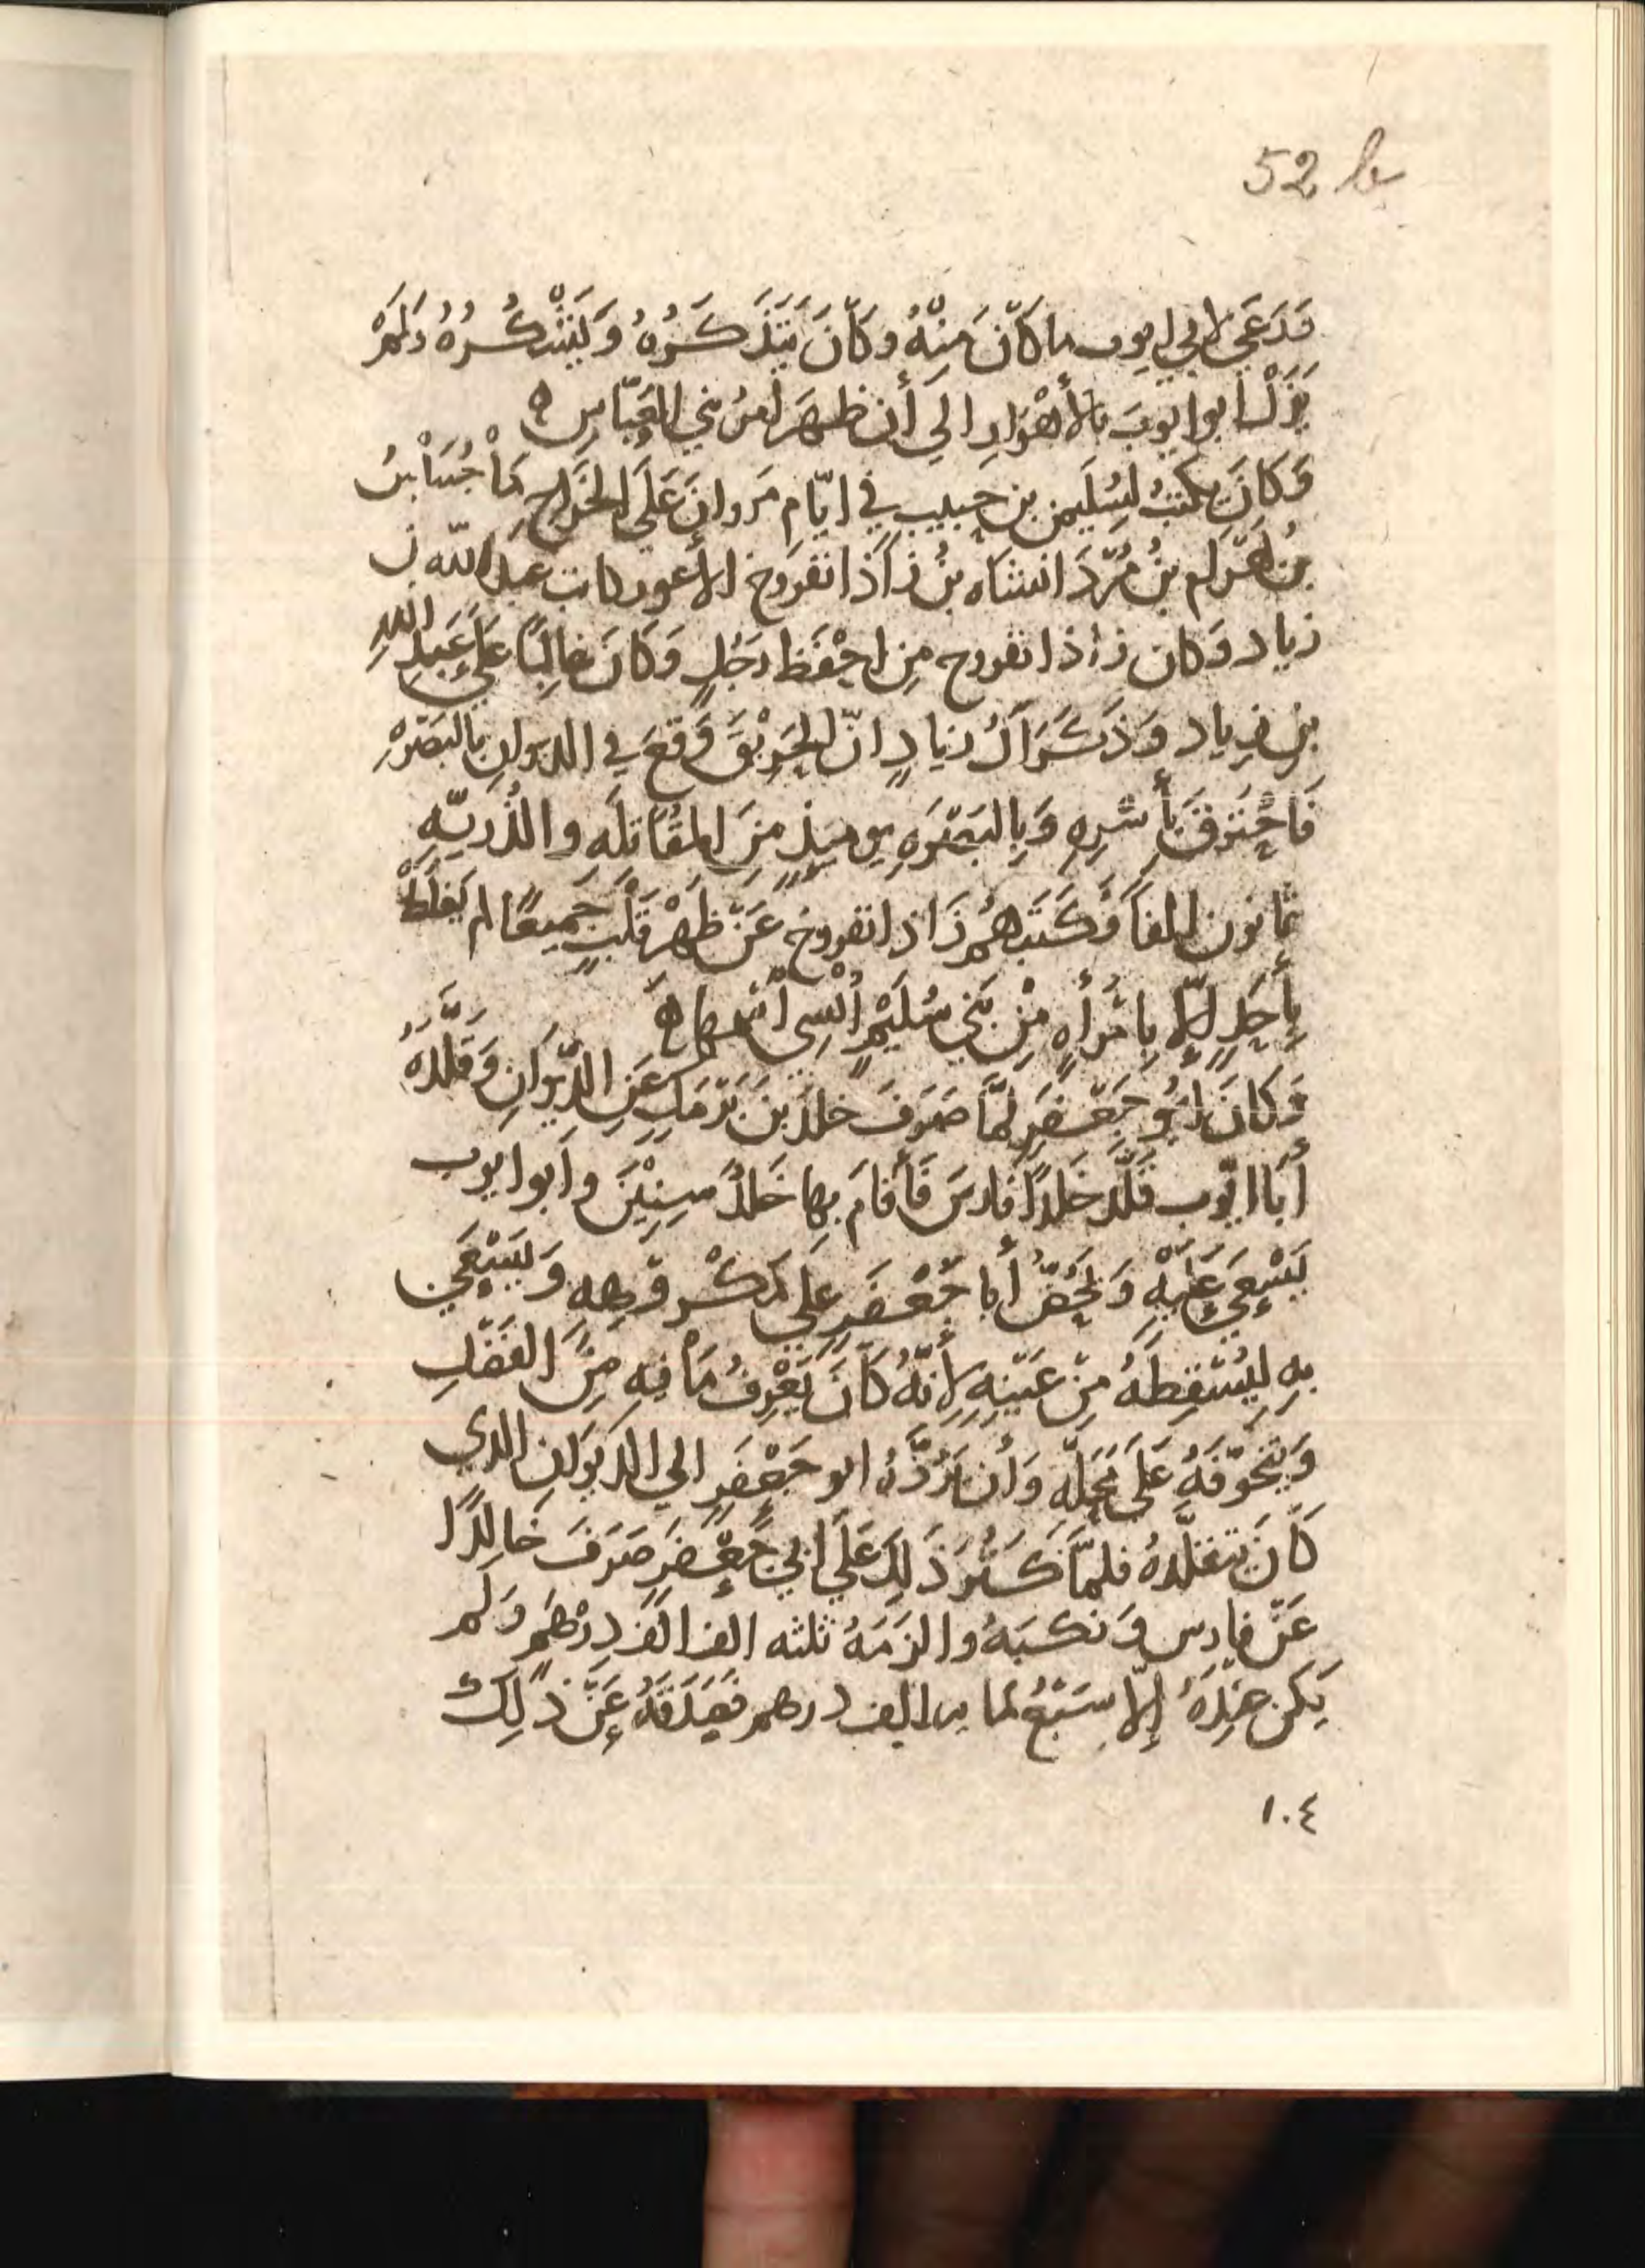 52 b
قَدَ عَي لابي ايوب ما كَانَ مِنْهُ وكَانَ يَتَذَكَرُهُ وَيَتَشْكُرُهُ وَلَمْ
يَزَلْ ابو ايوبَ بالأهْوَازِ الي أن ظهَرَ امرُ بني العَبّاسِ ه
وَكَانَ يكتبُ لسُلَيمن بن حبيب في ايّامِ مَروانَ عَلَي الخَرَاجِ مَاْجُسَاْبسُ
بنُ بَهرَام بنُ مُرّدَانشاه بنُ زَاذَانفروخ الاعور كاتب عبيدالله بن
زياد وَكان زاذانفروح مِن احْفَظِ رَجُلٍ وَكَانَ غالِبًا عَلَي عُبَيدِ اللهِ
بن زياد وَذَكَرَ آلُ زيادٍ انّ الحَرِيْقَ وَقعَ في الديوانِ بالبَصْرَةِ
فَاحْتَرقَ بأَسْرِهِ وَبِالبَصْرَهِ يوميذٍ مِنَ المقَاتلَهِ والذُريّهِ
ثمانون الفاً فكَتَبهُم زَاذانفروخ عَنْ ظهْرِ قَلْبٍ جَميعًا لم يَغلَطْ
بأَحَدٍ الّا بِامْرأهٍ مِنْ بَني سُلَيْمٍ أُنْسِي اسْمَها ه
وَكانَ ابُو جَعْفَرٍ لمّا صَرَفَ خلدَ بنَ بَرْمَكٍ عَنِ الدِّيْوانِ وَقَلَّدَهُ
أبَا ايّوب قَلّدَ خَلدًا فَارسَ فَأقامَ بها خَلدٌ سِنِيْنَ وأبو ايوب
يَسْعَي عَلَيْهِ وَيَحُضُّ أبا جَعْفَرٍ علَي مَكْروهِهِ وَيَسْعَي
بهِ ليُسْقِطَهُ مِنْ عَيْنِهِ لأنّهُ كَانَ يَعْرِفُ مَا فيهِ مِنَ الفَضْلِ
وَيتَخَوّفَهُ عَلَي مَحَلّهِ وَأن يَرُدَّهُ ابو جَعْفَرٍ الي الديوَانِ الذي
كَانَ يتقلّدُهُ فلمَّا كَثُرَ ذَلِكَ عَلَي ابي جَعْفَرٍ صَرَفَ خَالِدًا
عَنْ فارس وَنكبَهُ والزَمَهُ ثلثه الف الف دِرْهَمٍ وَلَم
يَكن عندَهُ إلّا سَبْعُ مايه الف درهم فصَدَقَهُ عَنْ ذَلِكَ
١٠٤